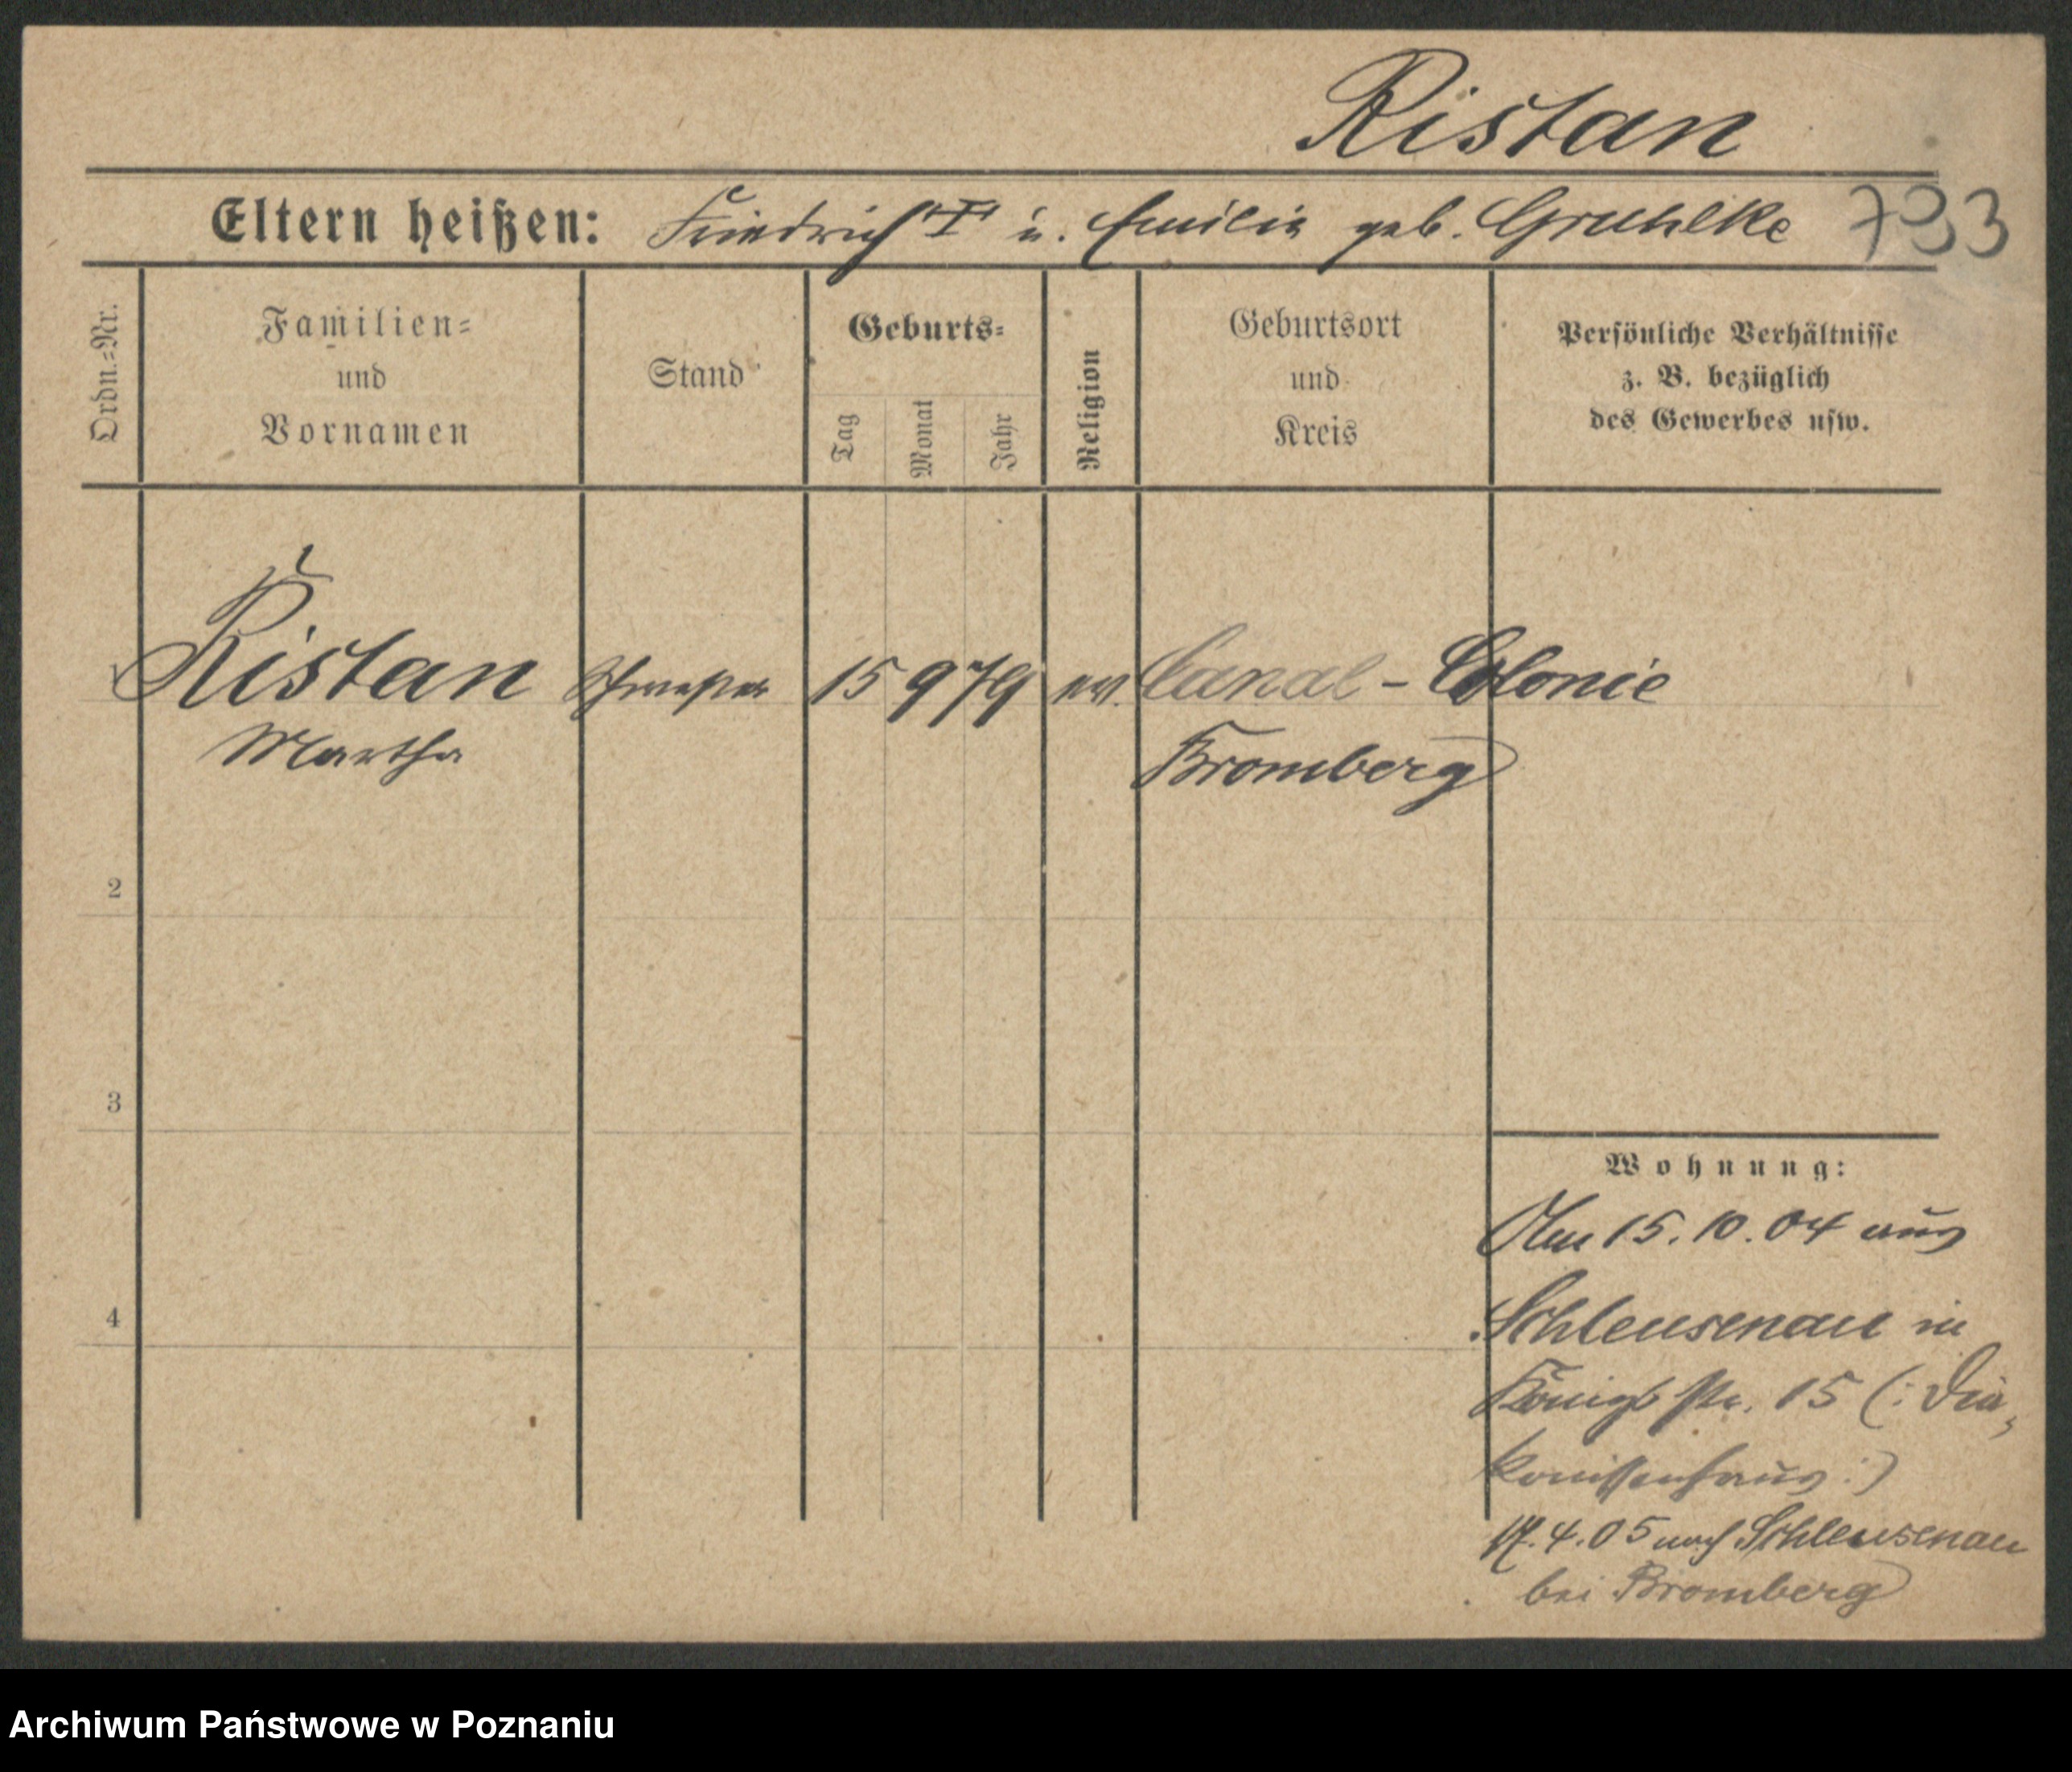 Ristan
Eltern heißen: Friedrich † u. Emilie geb. Gruhlke 733
Ordn.=Nr.
Familien=
und
Vornamen
Stand
Geburts=
Tag
Monat
Jahr
Religion
Geburtsort
und
Kreis
Persönliche Verhältnisse
z. B. bezüglich
des Gewerbes usw.
1 Ristan Schwester 15 9 79 ev. Canal - Colonie
Martha Bromberg
2
3
4
Wohnung:
Am 15.10.04 aus
Schleusenau in
Königsstr. 15 (: Dia-
konissenhaus :)
4.05 nach Schleusenau
bei Bromberg
Archiwum Państwowe w Poznaniu